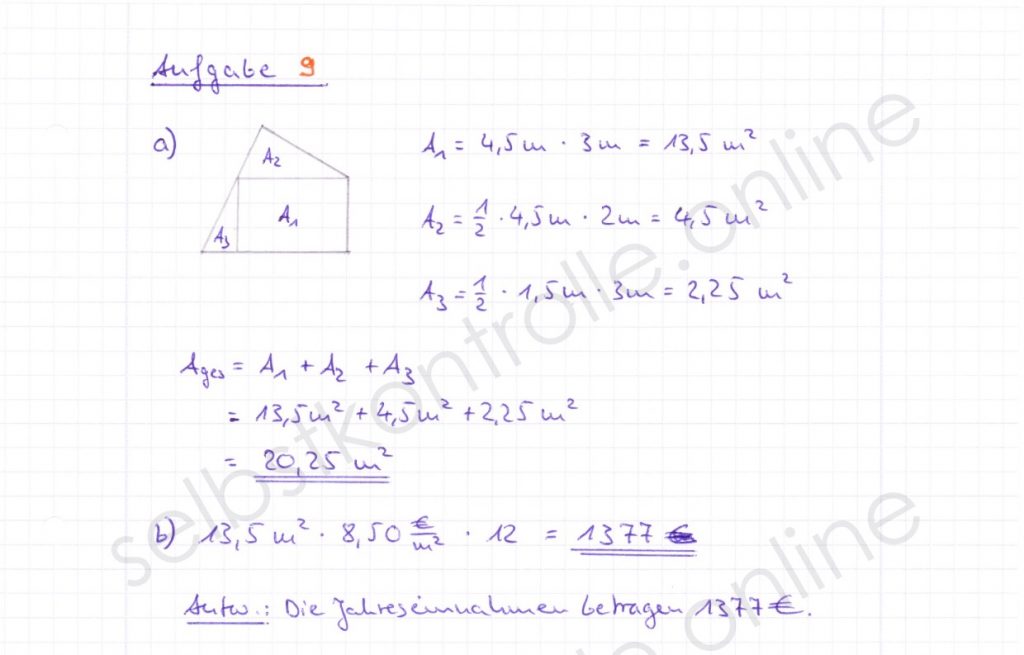 Aufgabe 9
a)
A2
A1
A3
A1 = 4,5 m · 3 m = 13,5 m²
A2 = 1/2 · 4,5 m · 2 m = 4,5 m²
A3 = 1/2 · 1,5 m · 3 m = 2,25 m²
Ages = A1 + A2 + A3
= 13,5 m² + 4,5 m² + 2,25 m²
= 20,25 m²
b) 13,5 m² · 8,50 €/m² · 12 = 1377 €
Antw.: Die Jahreseinnahmen betragen 1377 €.
selbstkontrolle.online
online